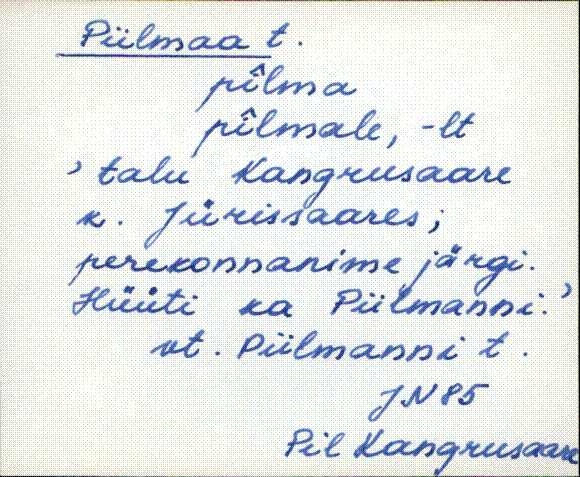 Piilmaa t.
pîlma
pîlmale, -lt
'talu Kangrusaare
k. Jürissaares;
perekonnanime järgi.
Hüüti ka Piilmanni.'
vt. Piilmanni t.
JN 85
Pil Kangrusaare